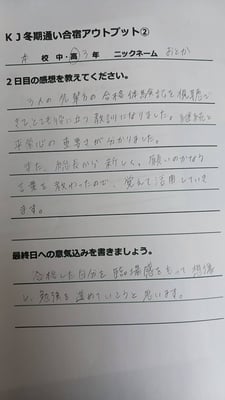 KJ冬期通い合宿アウトプット②
本 校 中・高 3 年 ニックネーム おとか
2日目の感想を教えてください。
3人の先輩方の合格体験談を視聴で
きとても役に立つ教訓になりました。継続と
平常心の重要さが分かりました。
また、総長から新しく、願いのかなう
言葉を教わったので、覚えて活用していき
ます。
最終日への意気込みを書きましょう。
合格した自分を臨場感をもって想像
し、勉強を進めていこうと思います。